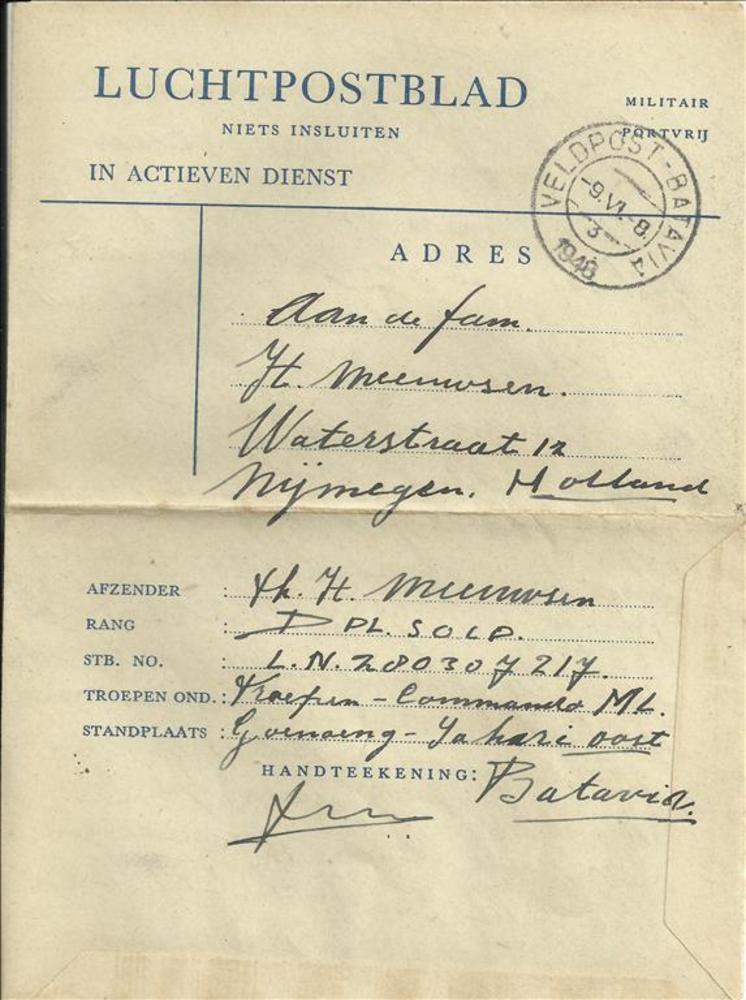 LUCHTPOSTBLAD
MILITAIR
PORTVRIJ
NIETS INSLUITEN
IN ACTIEVEN DIENST
VELDPOST-BATAVIA
-9.VI.-8.
3
1948
ADRES
Aan de fam.
H. Meeuwsen.
Waterstraat 12
Nijmegen. Holland
AFZENDER : Th. H. Meeuwsen
RANG : DPL. SOLD.
STB. NO. : L.N. 280307217.
TROEPEN OND. : Troepen-Commando ML.
STANDPLAATS : Goenoeng-Sahari oost
HANDTEEKENING: Batavia.